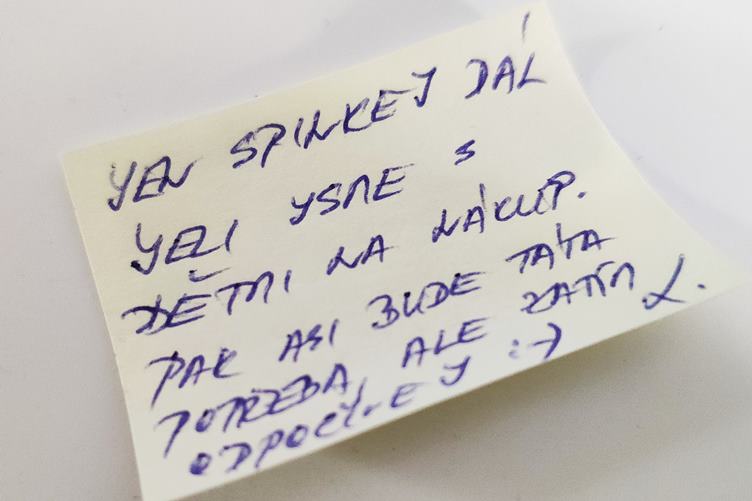 YEN SPINKEJ DÁL
YELI YSME S
DĚTMI NA NÁKUP.
PAK ASI BUDE TÁTA
POTŘEBA, ALE ZATÍM
ODPOČÍVEJ :-) L.